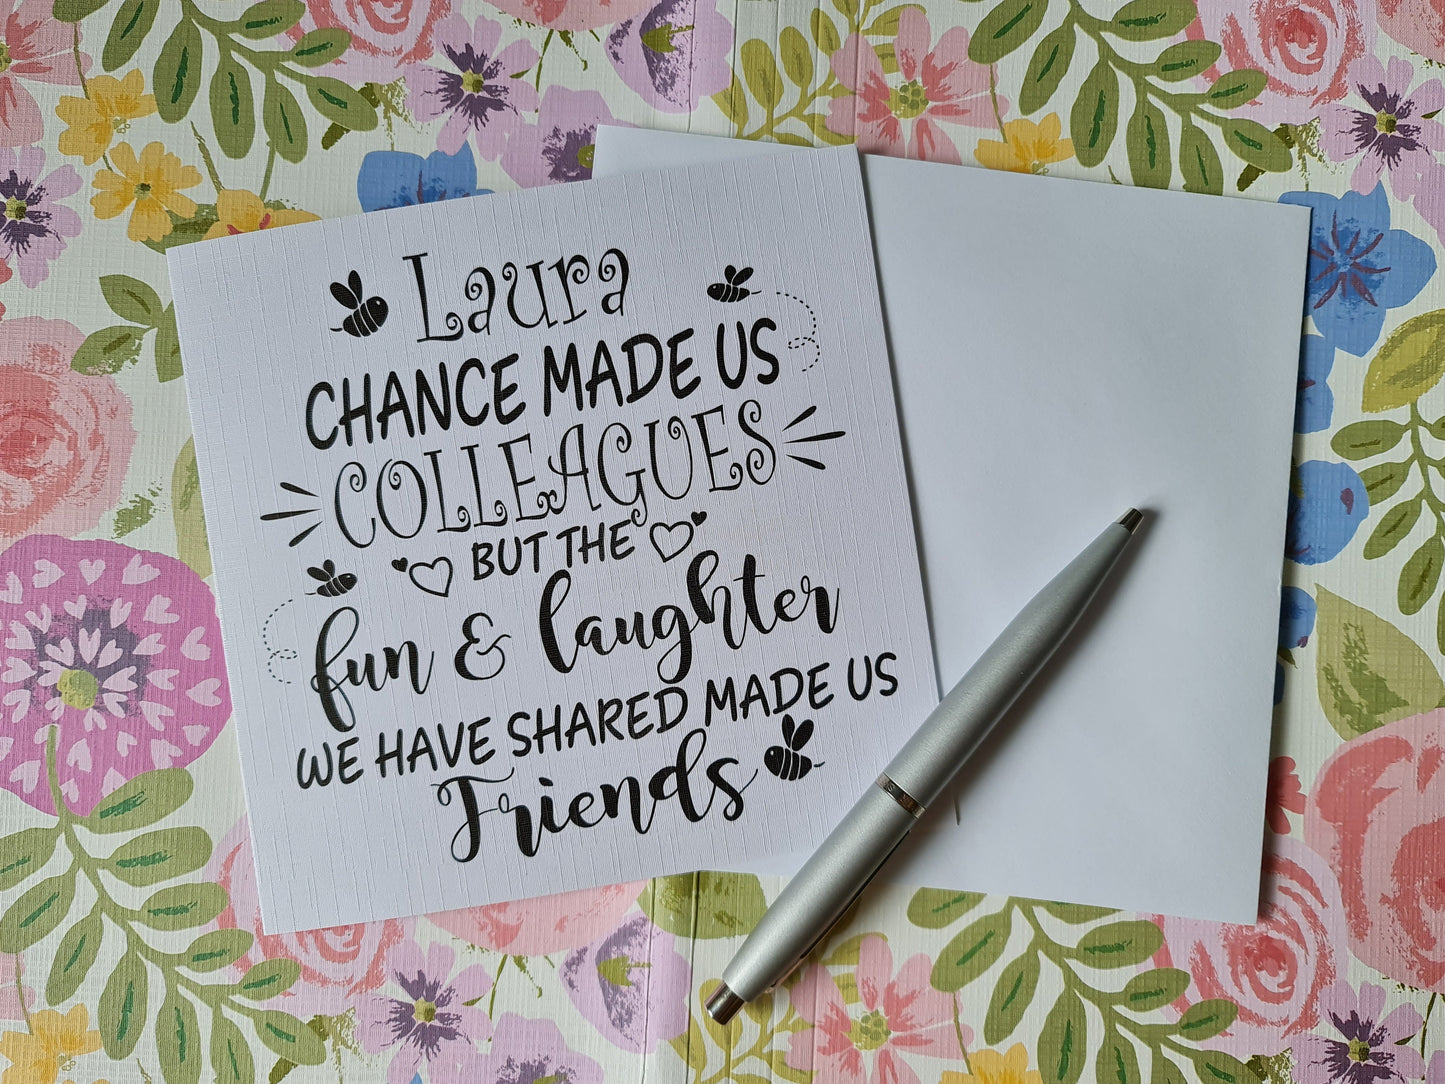 Laura
CHANCE MADE US
COLLEAGUES
BUT THE
fun & laughter
WE HAVE SHARED MADE US
Friends